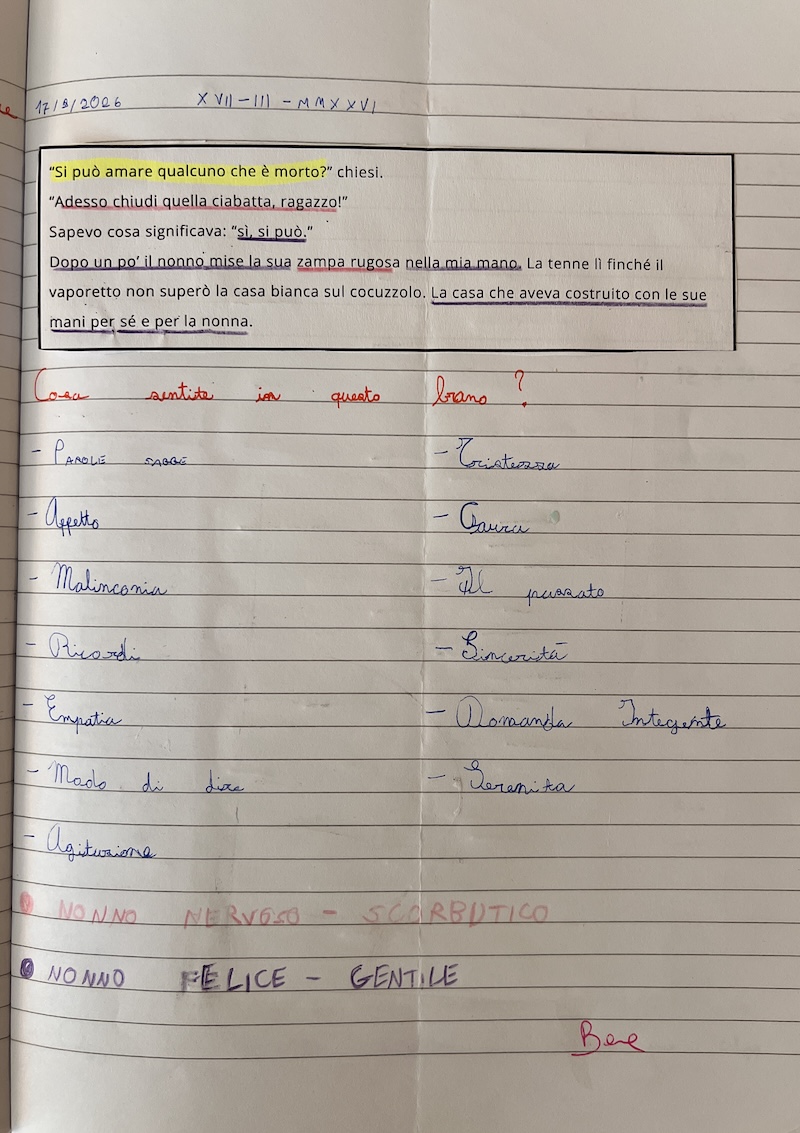 17/3/2026 XVII-III-MMXXVI
“Si può amare qualcuno che è morto?” chiesi.
“Adesso chiudi quella ciabatta, ragazzo!”
Sapevo cosa significava: “sì, si può.”
Dopo un po’ il nonno mise la sua zampa rugosa nella mia mano. La tenne lì finché il
vaporetto non superò la casa bianca sul cocuzzolo. La casa che aveva costruito con le sue
mani per sé e per la nonna.
Cosa sentite in questo brano?
- PAROLE SAGGE
- Affetto
- Malinconia
- Ricordi
- Empatia
- Modo di dire
- Agitazione
- Tristezza
- Paura
- Il passato
- Sincerità
- Domanda Integente
- Serenita
NONNO NERVOSO - SCORBUTICO
NONNO FELICE - GENTILE
Bene